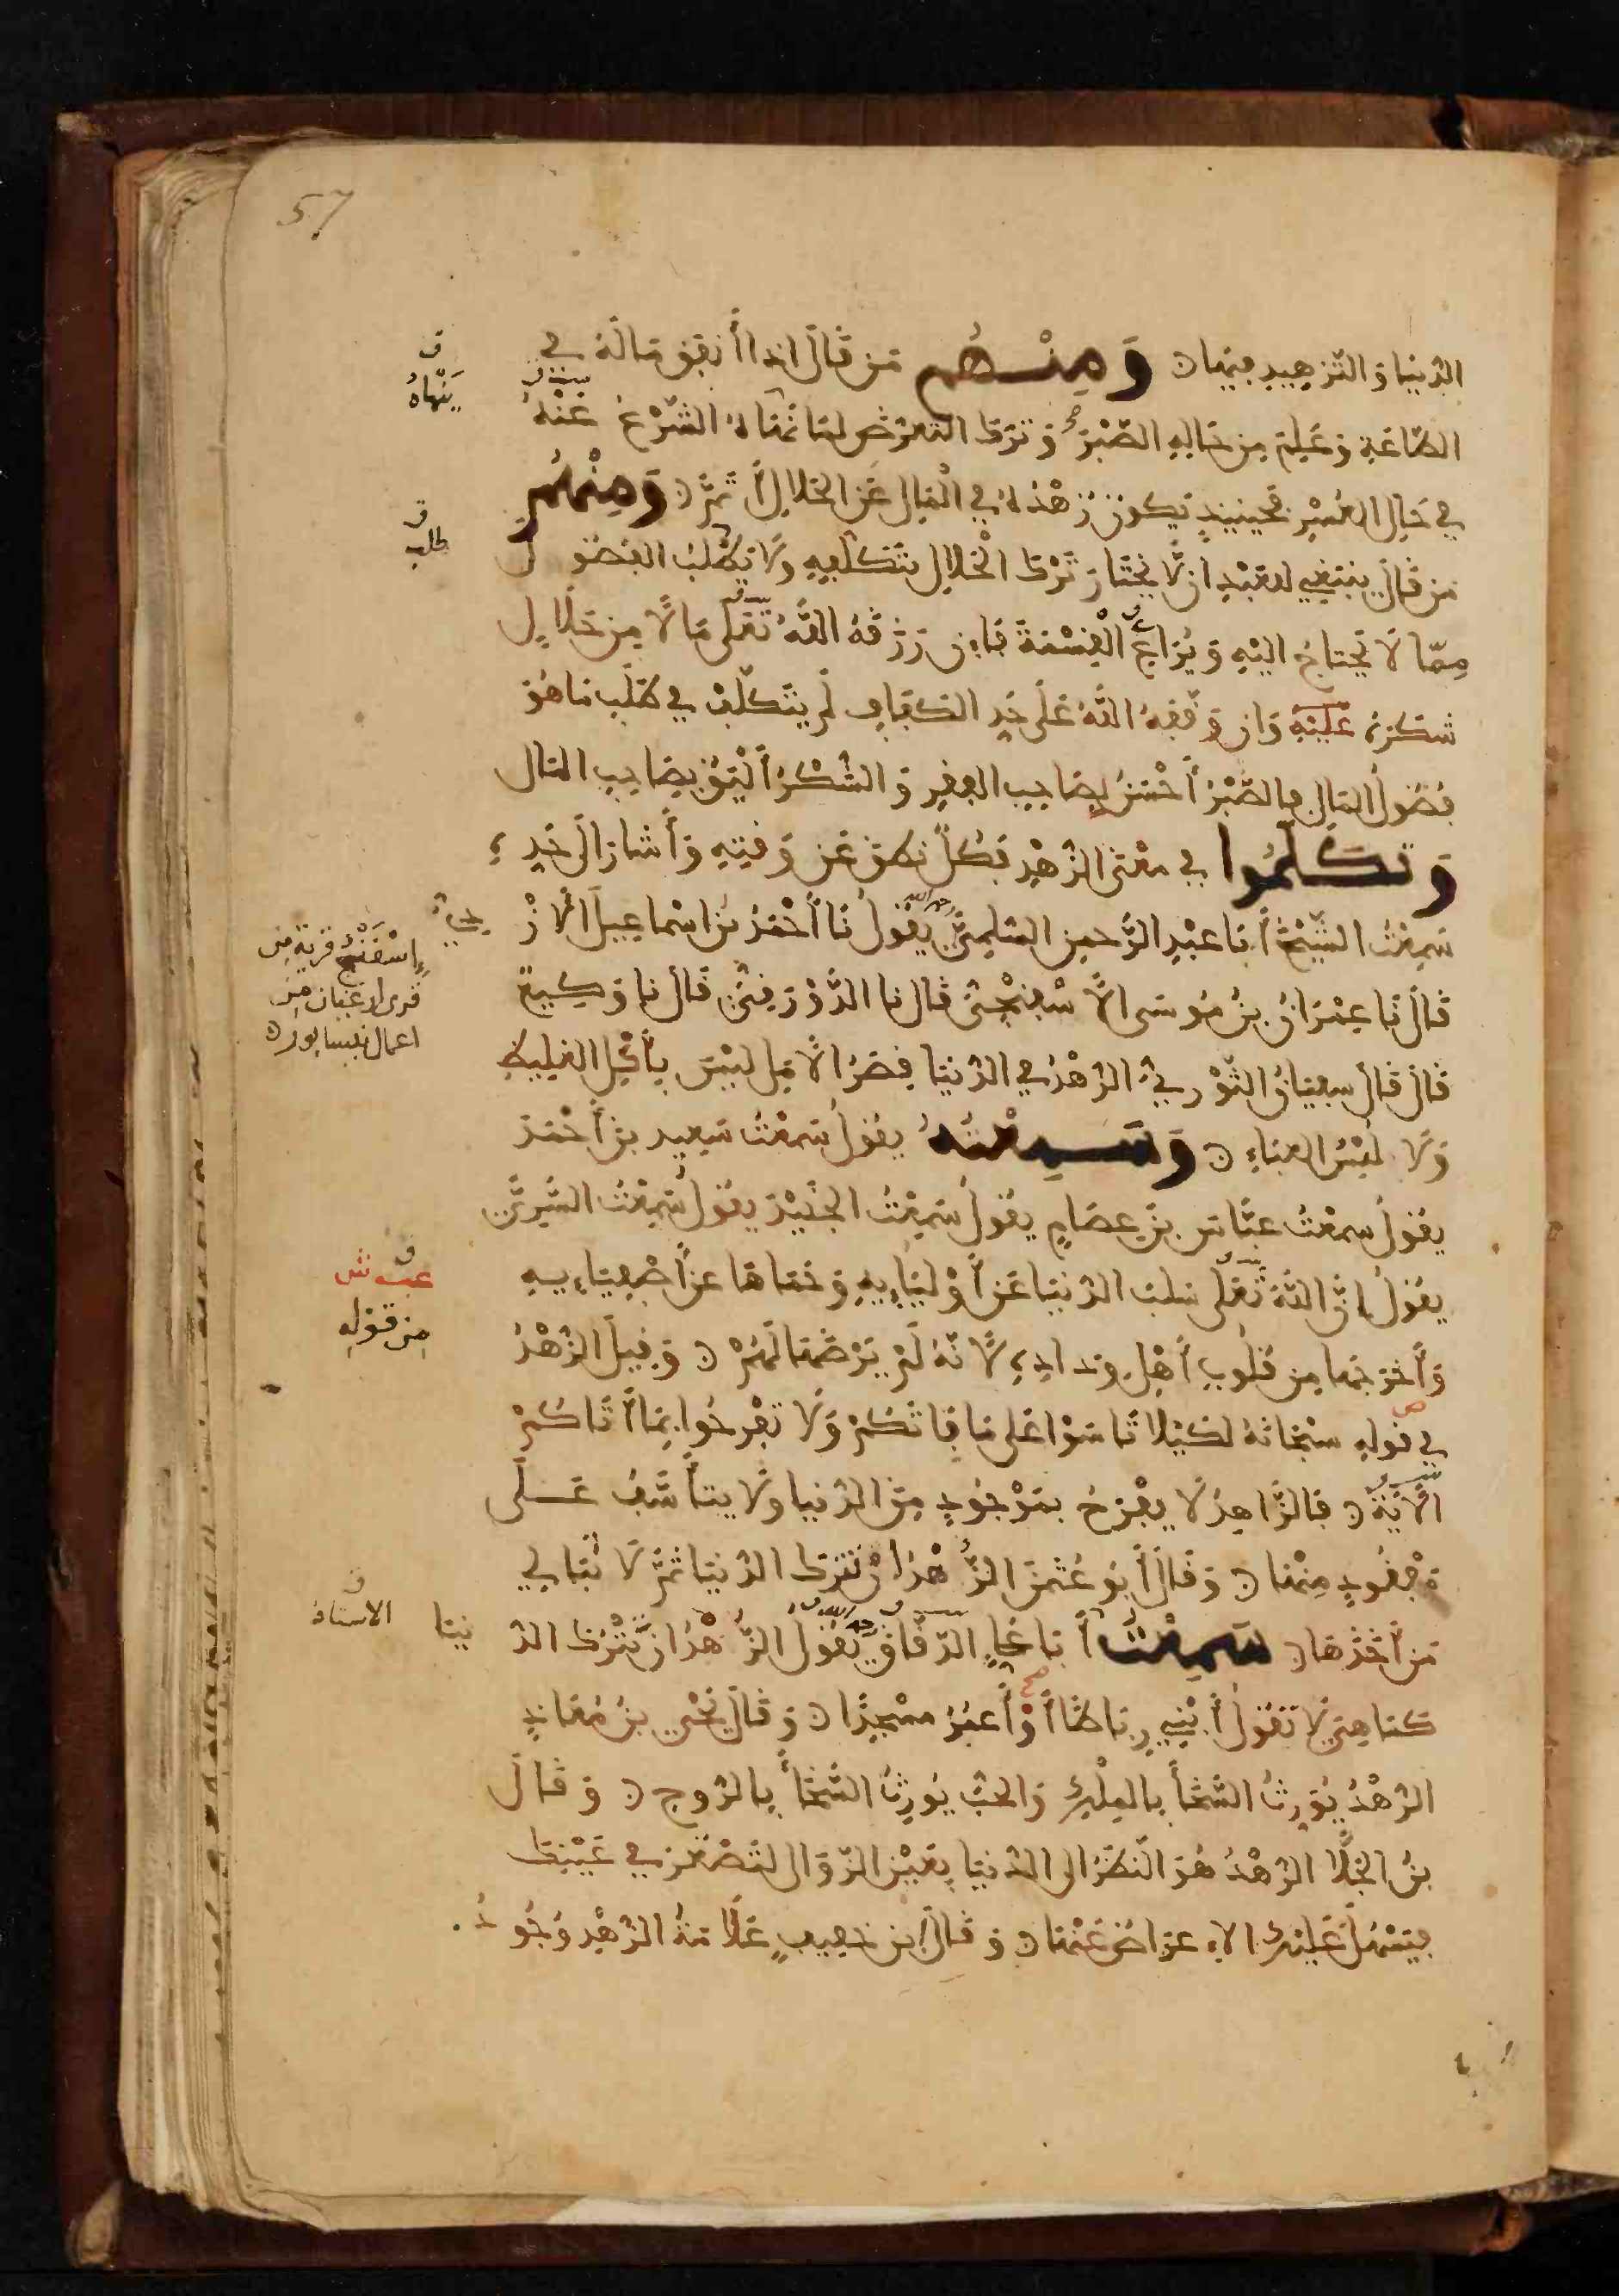 57
الدُّنْيَا وَ التَّزْهِيدِ فِيهَا ۝ وَمِنْهُم مَن قَالَ إِذا أَنفَقَ مَالَهُ فِي
الطَّاعَةِ وَ عَلِمَ مِن حَالِهِ الصَّبْرَ وَ تَرَكَ التَّعَرُّضَ لِمَا نَهَاهُ الشَّرْعُ عَنْهُ
يَنْهَاهُ
فِي حَالِ العُسْرِ فَحِينَئِذٍ يَكُونُ زُهْدُهُ فِي الْمَالِ عَنِ الحَلَالِ أَتَمَّ ۝ وَمِنْهُم
مَن قَالَ يَنبَغِي لِلعَبْدِ أن لَّا يَخْتَارَ تَرْكَ الْحَلَالِ بتَكَلُّفِهِ وَلَا يَطْلُبَ الفُضُولَ
طلب
مِمَّا لَا يَحْتَاجُ اليْهِ وَ يُرَاعِي الْقِسْمَةَ فَإِن رَزَقَهُ اللَّهُ تَعَلَى مَالًا مِن حَلَالٍ
شَكَرَهُ عَلَيْهِ وَإن وَقَّفَهُ اللَّهُ عَلَى حَدِّ الكَفَافِ لَم يَتَكَلَّفْ فِي طَلَبِ مَا هُوَ
فُضُولُ المَالِ فالصَّبْرُ أَحْسَنُ بِصَاحِبِ الفَقْرِ وَ الشُّكْرُ أَلْيَقُ بِصَاحِبِ المَالِ
وَتَكَلَّمُوا فِي مَعْنَى الزُّهْدِ فَكُلٌّ نَطَقَ عَن وَقْتِهِ وَأَشَارَ الَى حَدِّهِ
سَمِعْتُ الشَّيْخَ أَبَا عَبْدِ الرَّحمنِ السُّلَمِيَّ رحمه الله يَقُولُ نَا أَحْمَدُ بْنُ اسْمَاعِيلَ الأَزْدِيُّ
إِسْفَنْج قرية من
قرى ارغيان من
اعمال نيسابور ۝
قَالَ نَا عِمْرَانُ بْنُ مُوسَى الإِسْفَنْجِيُّ قَالَ نا الدَّوْرَقِيُّ قَالَ نا وَكِيعٌ
قَالَ قَالَ سفيَانُ الثَّوْرِيُّ الزُّهْدُ فِي الدُّنْيَا قِصَرُ الأَمَلِ لَيْسَ بِأَكْلِ الغَلِيظِ
وَلَا لُبْسِ العَبَاءِ ۝ وَسَمِعْتُهُ يَقُولُ سَمِعْتُ سَعِيدَ بنَ أَحْمَدَ
يَقُولُ سمِعْتُ عَبَّاسَ بْنَ عِصَامٍ يَقُولُ سَمِعْتُ الجُنَيْدَ يَقُولُ سَمِعْتُ السَّرِيَّ
يَقُولُ إِنَّ اللَّهَ تَعَلَى سَلَبَ الدُّنيَا عَن أَوْلِيَايِهِ وَ حَمَاهَا عَن أَصْفِيَايِهِ
من قوله
وَأَخْرَجَهَا مِن قُلُوبِ أَهْلِ وِدَادِهِ لِأَنَّهُ لَمْ يَرْضَهَا لَهُمْ ۝ وَقِيلَ الزُّهْدُ
فِي قَولِهِ سُبْحَانَهُ لِكَيْلَا تَاسَوْا عَلَى مَا فَاتَكُمْ وَلَا تَفْرَحُوا بِمَا آتَاكُمْ
الْآيَةَ ۝ فَالزَّاهِدُ لَا يَفْرَحُ بِمَوْجُودٍ مِنَ الدُّنيَا وَلَا يَتَأَسَّفُ عَلَى
مَفْقُودٍ مِنْهَا ۝ وَ قَالَ أَبُو عُثْمَنَ الزُّهْدُ أَنْ تَتْرُكَ الدُّنْيَا ثُمَّ لَا تُبَالِي
مَن أَخَذَهَا ۝ سَمِعْتُ أَبَا عَلِيٍّ الدَّقَّاقَ رحمه الله يَقُولُ الزُّهْدُ أن تَتْرُكَ الدُّنْيَا
الاستاذ
كَمَا هِيَ لَا تَقُولُ أَبْنِي رِبَاطًا أَوْ أَعْمُرُ مَسْجِدًا ۝ وَ قَالَ يَحْيَى بنُ مُعَاذٍ
الزُّهْدُ يُورِثُ السَّخَأَ بِالمِلْكِ وَالحُبُّ يُورِثُ السَّخَأَ بِالرُّوحِ ۝ وَ قَالَ
بنُ الجَلَّا الزُّهْدُ هُوَ النَّظَرُ الَى الدُّنْيَا بِعَيْنِ الزَّوَالِ لتَصْغُرَ فِي عَيْنِكَ
فَيَسْهُلَ عَلَيْكَ الإِعرَاضُ عَنْهَا ۝ وَ قَالَ ابن خَفِيفٍ عَلَامَةُ الزُّهْدِ وُجُودُ